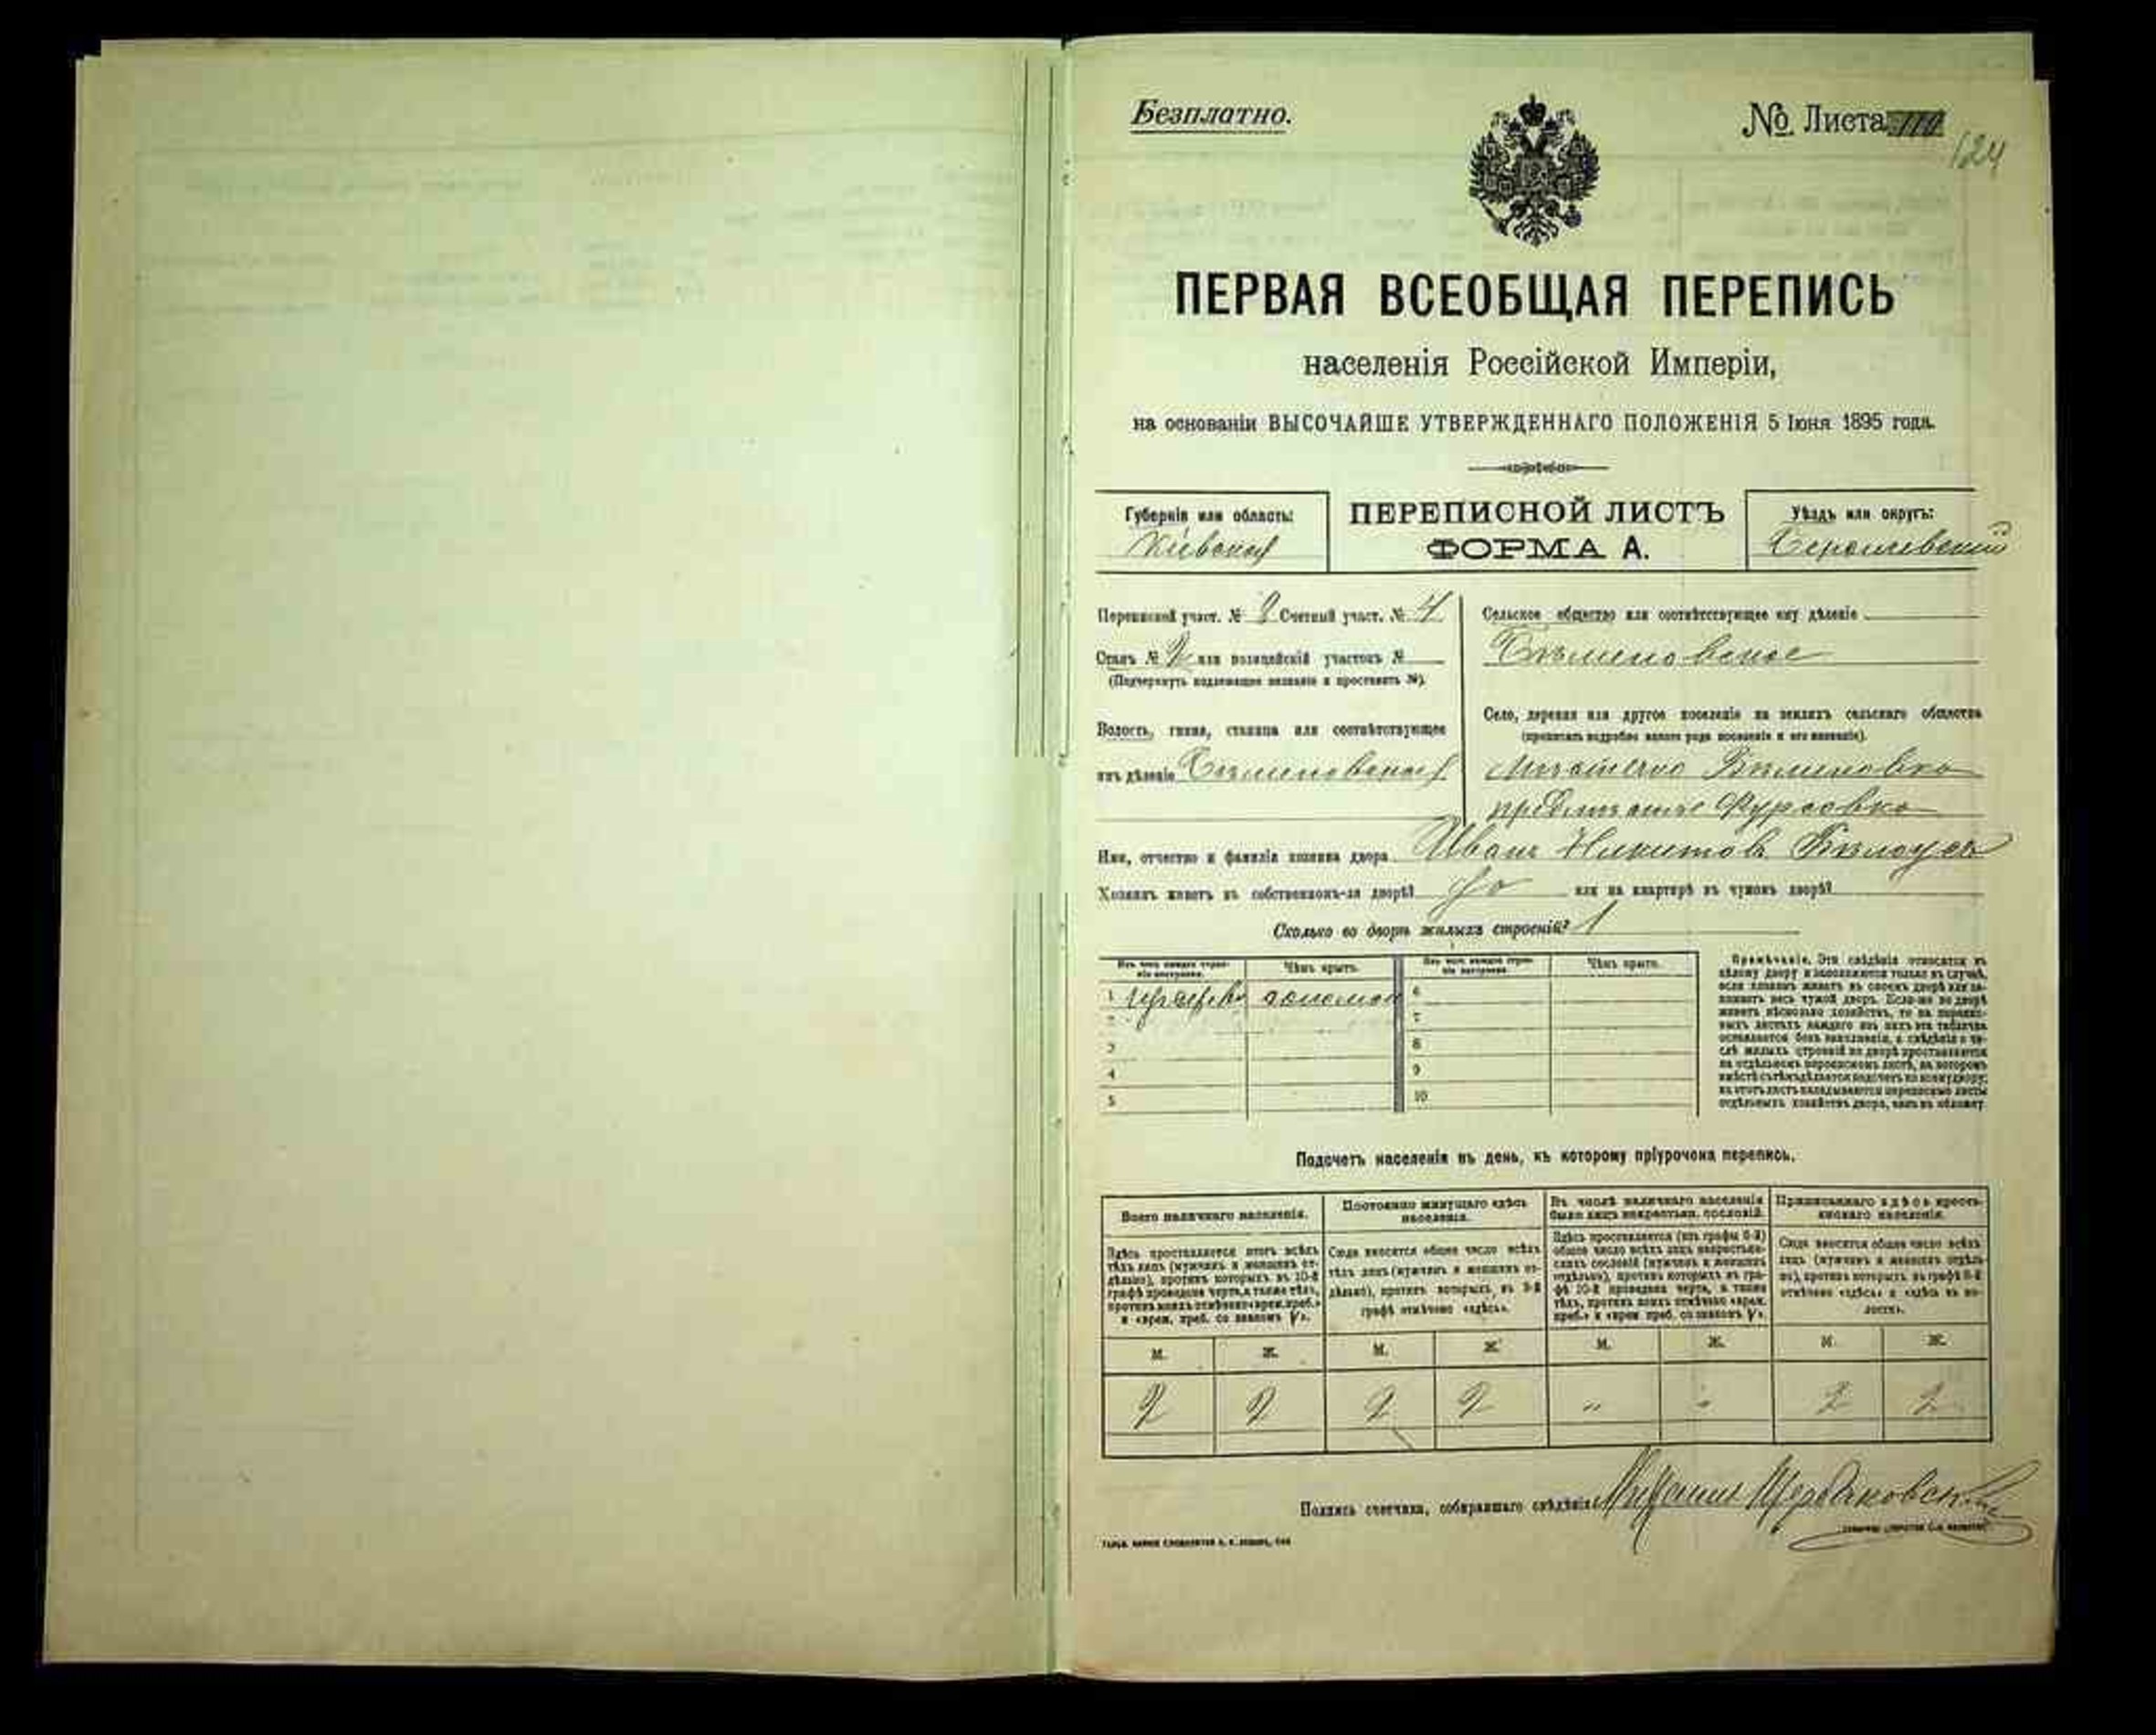 Безплатно.
№ Листа 110
124
ПЕРВАЯ ВСЕОБЩАЯ ПЕРЕПИСЬ
населенія Россійской Имперіи,
на основаніи ВЫСОЧАЙШЕ УТВЕРЖДЕННАГО ПОЛОЖЕНІЯ 5 Іюня 1895 года.
Губернія или область:
Кіевская
ПЕРЕПИСНОЙ ЛИСТЪ
ФОРМА А.
Уѣздъ или округъ:
Переписной участ. № 2 Счетный участ. № 4
Станъ № 2 или полицейскій участокъ №
(Подчеркнуть надлежащее названіе и проставить №).
Волость, гмина, станица или соотвѣтствующее
имъ дѣленіе
Сельское общество или соотвѣтствующее ему дѣленіе
Село, деревня или другое поселеніе на земляхъ сельскаго общества
(прописать подробно какого рода поселеніе и его названіе).
Мѣстечко
предмѣстье Фурсовка
Имя, отчество и фамилія хозяина двора Иванъ Никитовъ Бѣлоусъ
Хозяинъ живетъ въ собственномъ-ли дворѣ? да или на квартирѣ въ чужомъ дворѣ?
Сколько во дворѣ жилыхъ строеній? 1
Изъ чего каждое строеніе построено.
Чѣмъ крыто.
Изъ чего каждое строеніе построено.
Чѣмъ крыто.
1 соломою 6
2 7
3 8
4 9
5 10
Примѣчаніе. Эти свѣдѣнія относятся къ
цѣлому двору и заполняются только въ случаѣ,
если хозяинъ живетъ въ своемъ дворѣ или за-
нимаетъ весь чужой дворъ. Если-же во дворѣ
живетъ нѣсколько хозяйствъ, то на перепис-
ныхъ листахъ каждаго изъ нихъ эта табличка
оставляется безъ заполненія, а свѣдѣнія о чи-
слѣ жилыхъ строеній во дворѣ проставляются
на отдѣльномъ переписномъ листѣ, на которомъ
вмѣстѣ съ тѣмъ дѣлается подсчетъ по всему двору;
въ этотъ листъ вкладываются переписные листы
отдѣльныхъ хозяйствъ двора, какъ въ обложку.
Подсчетъ населенія въ день, къ которому пріурочена перепись.
Всего наличнаго населенія.
Здѣсь проставляется итогъ всѣхъ
тѣхъ лицъ (мужчинъ и женщинъ от-
дѣльно), противъ которыхъ въ 10-й
графѣ проведена черта, а также тѣхъ,
противъ коихъ отмѣчено «врем. преб.»
и «врем. преб. со знакомъ V».
Постоянно живущаго здѣсь
населенія.
Сюда вносится общее число всѣхъ
тѣхъ лицъ (мужчинъ и женщинъ от-
дѣльно), противъ которыхъ въ 9-й
графѣ отмѣчено «здѣсь».
Въ числѣ наличнаго населенія
было лицъ некрестьян. сословій.
Здѣсь проставляется (изъ графы 6-й)
общее число всѣхъ лицъ некрестьян-
скихъ сословій (мужчинъ и женщинъ
отдѣльно), противъ которыхъ въ гра-
фѣ 10-й проведена черта, а также
тѣхъ, противъ коихъ отмѣчено «врем.
преб.» и «врем. преб. со знакомъ V».
Приписаннаго здѣсь кресть-
янскаго населенія.
Сюда вносится общее число всѣхъ
лицъ (мужчинъ и женщинъ отдѣль-
но), противъ которыхъ въ графѣ 8-й
отмѣчено «здѣсь» и «здѣсь въ во-
лости».
М. Ж. М. Ж. М. Ж. М. Ж.
2 2 2 2 " " 2 2
Подпись счетчика, собиравшаго свѣдѣнія